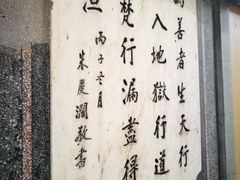 善者生天行
入地獄行道
梵行漏盡得
丙子冬月
朱慶瀾敬書